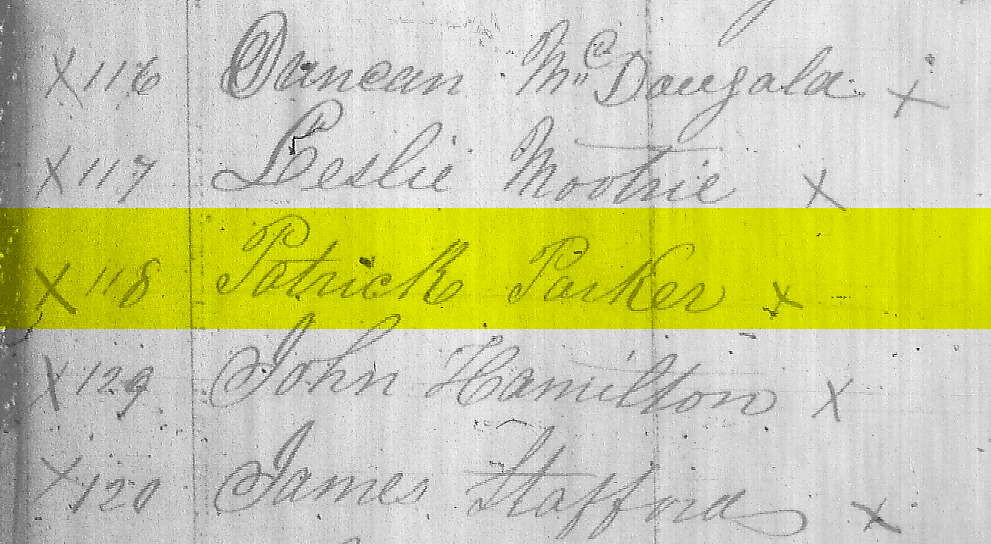 X 116 Duncan McDougald X
X 117 Leslie Mootrie X
X 118 Patrick Parker X
X 129 John Hamilton X
X 120 James Stafford X